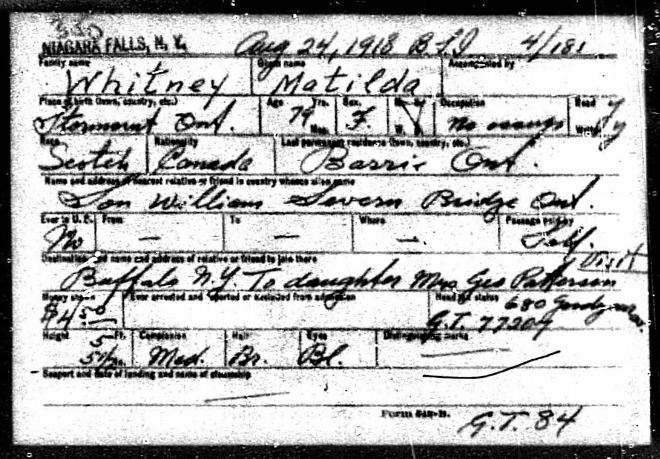 350
NIAGARA FALLS, N. Y. Aug 24, 1918 B.S.I 4/181
Family name Given name Accompanied by
Whitney Matilda
Place of birth (town, country, etc.) Age Yrs. Mos. Sex. M. S. W. D. Occupation Read Write
Stormont Ont. 79 F. No occup y y
Race Nationality Last permanent residence (town, country, etc.)
Scotch Canada Barrie Ont.
Name and address of nearest relative or friend in country whence alien came
Son William Severn Bridge Ont.
Ever in U. S. From To Where Passage paid by
No — — — Self.
Destination, and name and address of relative or friend to join there Visit
Buffalo N.Y. To daughter Mrs Geo Patterson
Money shown Ever arrested and deported or excluded from admission Head tax status 680
$4.50 G.T. 77204
Height Ft. Ins. Complexion Hair Eyes Distinguishing marks
5 5½ Med. Br. Bl. —
Seaport and date of landing and name of steamship
—
Form G.T. 84